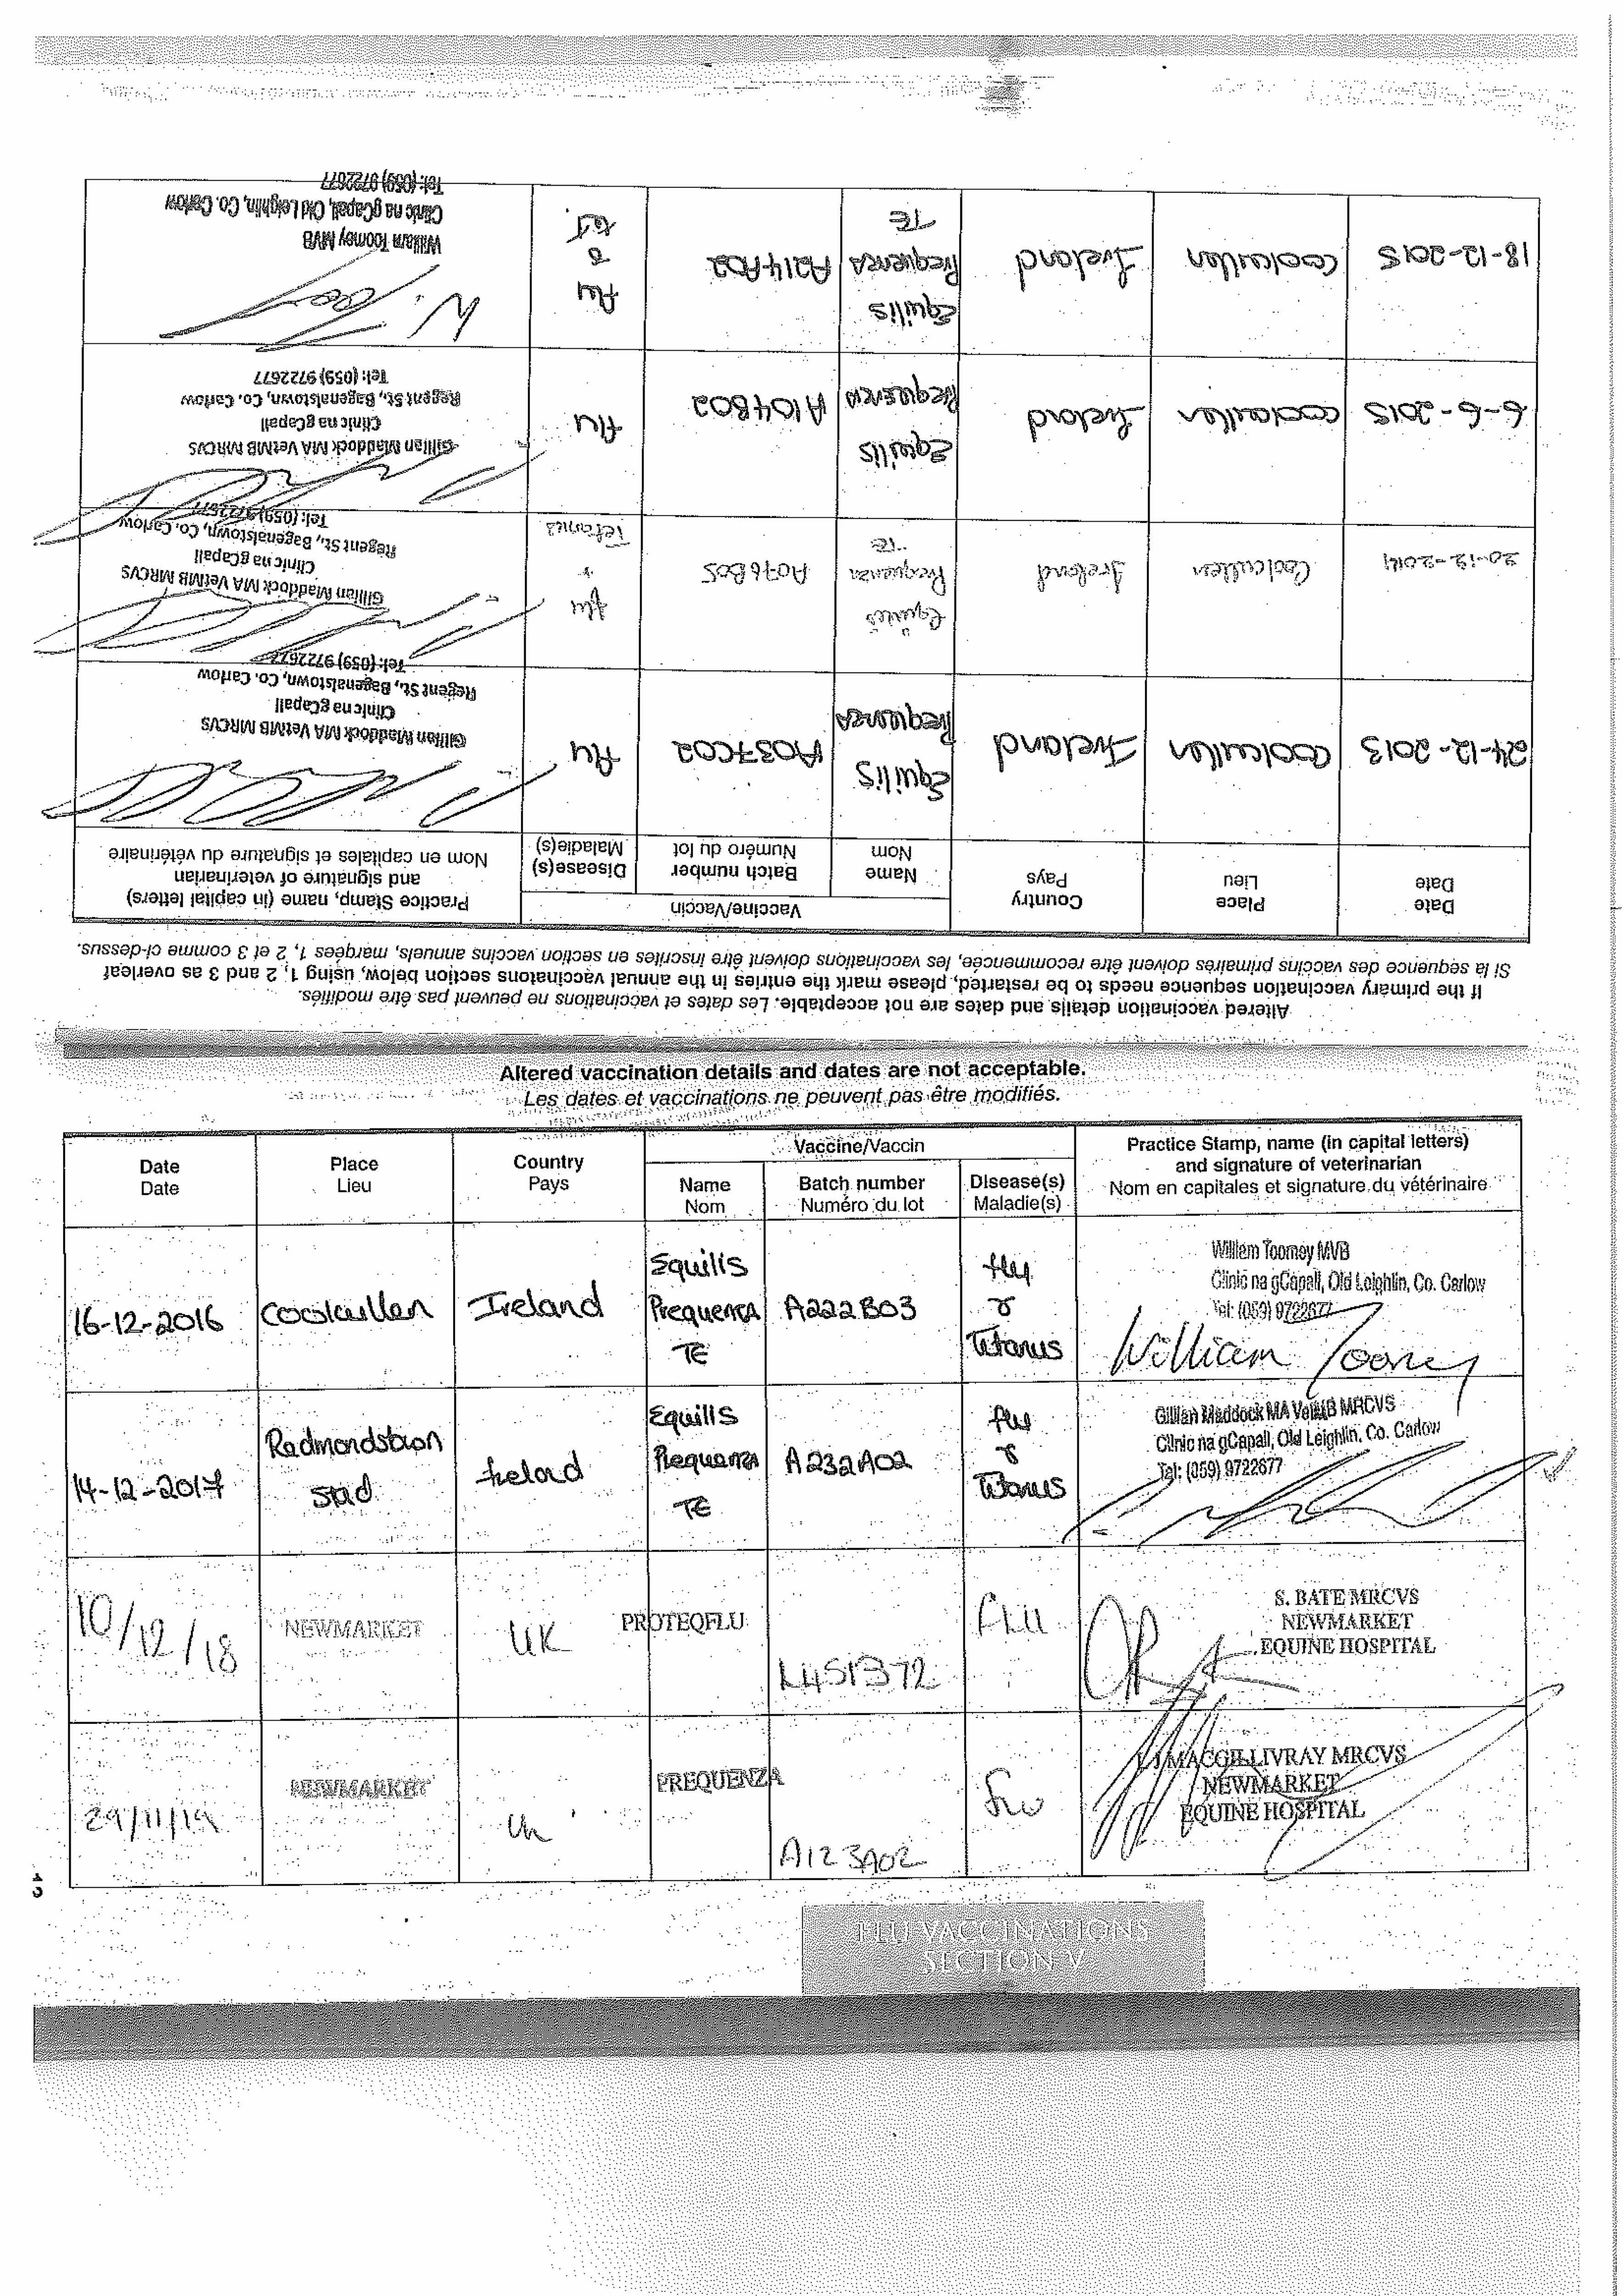 Altered vaccination details and dates are not acceptable. Les dates et vaccinations ne peuvent pas être modifiés.
If the primary vaccination sequence needs to be restarted, please mark the entries in the annual vaccinatons section below, using 1, 2 and 3 as overleaf
Si la séquence des vaccins primaires doivent être recommencée, les vaccinations doivent être inscrites en section vaccins annuels, marquées 1, 2 et 3 comme ci-dessus.
Date
Date
Place
Lieu
Country
Pays
Vaccine/Vaccin
Name
Nom
Batch number
Numéro du lot
Disease(s)
Maladie(s)
Practice Stamp, name (in capital letters)
and signature of veterinarian
Nom en capitales et signature du vétérinaire
24-12-2013
Coolcullen
Ireland
Equilis
Prequenza
A037C02
flu
Gillian Maddock MA VetMB MRCVS
Clinic na gCapall
Regent St., Bagenalstown, Co. Carlow
Tel: (059) 9722677
20-12-2014
Coolcullen
Ireland
Equilis
Prequenza
TE
A076B05
flu
+
Tetanus
Gillian Maddock MA VetMB MRCVS
Clinic na gCapall
Regent St., Bagenalstown, Co. Carlow
Tel: (059) 9722677
6-6-2015
Coolcullen
Ireland
Equilis
Prequenza
A104B02
flu
Gillian Maddock MA VetMB MRCVS
Clinic na gCapall
Regent St., Bagenalstown, Co. Carlow
Tel: (059) 9722677
18-12-2015
Coolcullen
Ireland
Equilis
Prequenza
TE
A214A02
flu
&
tet.
William Toomey MVB
Clinic na gCapall, Old Leighlin, Co. Carlow
Tel: (059) 9722677
Altered vaccination details and dates are not acceptable.
Les dates et vaccinations ne peuvent pas être modifiés.
Date
Date
Place
Lieu
Country
Pays
Vaccine/Vaccin
Name
Nom
Batch number
Numéro du lot
Disease(s)
Maladie(s)
Practice Stamp, name (in capital letters)
and signature of veterinarian
Nom en capitales et signature du vétérinaire
16-12-2016
Coolcullen
Ireland
Equilis
Prequenza
TE
A222B03
flu
&
Tetanus
William Toomey MVB
Clinic na gCapall, Old Leighlin, Co. Carlow
Tel: (059) 9722677
William Toomey
14-12-2017
Redmondstown
Stud
Ireland
Equilis
Prequenza
TE
A232A02
flu
&
Tetanus
Gillian Maddock MA VetMB MRCVS
Clinic na gCapall, Old Leighlin, Co. Carlow
Tel: (059) 9722677
10/12/18
NEWMARKET
UK
PROTEQFLU
L451372
FLU
S. BATE MRCVS
NEWMARKET
EQUINE HOSPITAL
29/11/19
NEWMARKET
UK
PREQUENZA
A123A02
Flu
MACGILLIVRAY MRCVS
NEWMARKET
EQUINE HOSPITAL
FLU VACCINATIONS
SECTION V